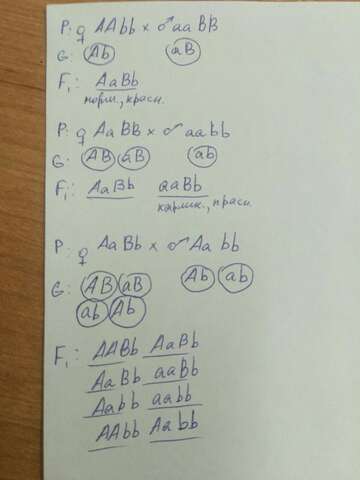 P: ♀ AAbb × ♂ aaBB
G: Ab aB
F₁: AaBb
норм., красн.
P: ♀ AaBB × ♂ aabb
G: AB aB ab
F₁: AaBb aaBb
карлик., красн.
P: ♀ AaBb × ♂ Aabb
G: AB aB Ab ab
ab Ab
F₁: AABb AaBb
AaBb aaBb
Aabb aabb
AAbb Aabb